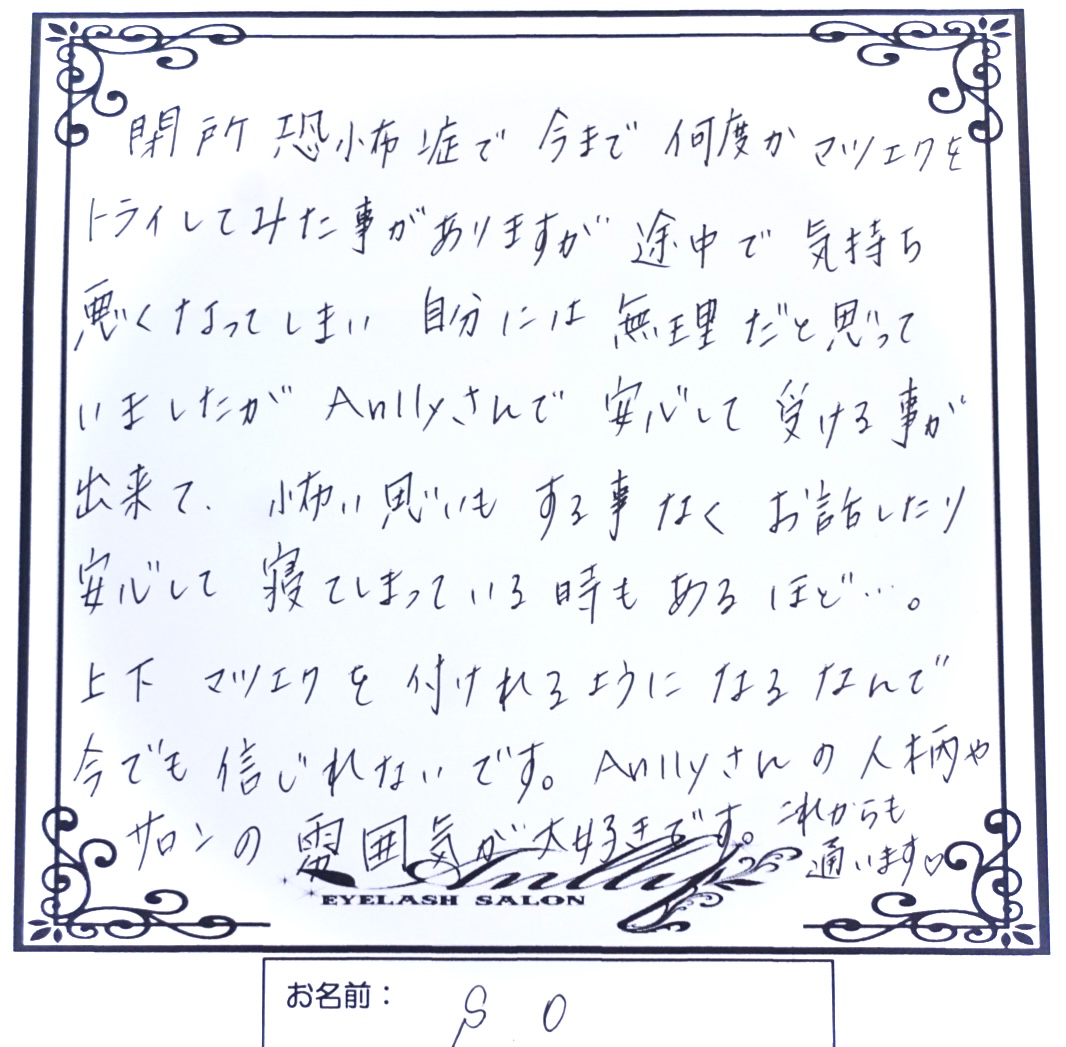 閉所恐怖症で 今まで 何度か マツエクを
トライしてみた事がありますが 途中で 気持ち
悪くなってしまい 自分には 無理だと思って
いましたが Anllyさんで 安心して 受ける事が
出来て、 怖い思いも する事なく お話したり
安心して 寝てしまっている時も あるほど…。
上下 マツエクを 付けれるようになるなんて
今でも 信じれないです。Anllyさんの 人柄や
サロンの 雰囲気が 大好きです。これからも
通います♡
Anlly
EYELASH SALON
お名前： S O